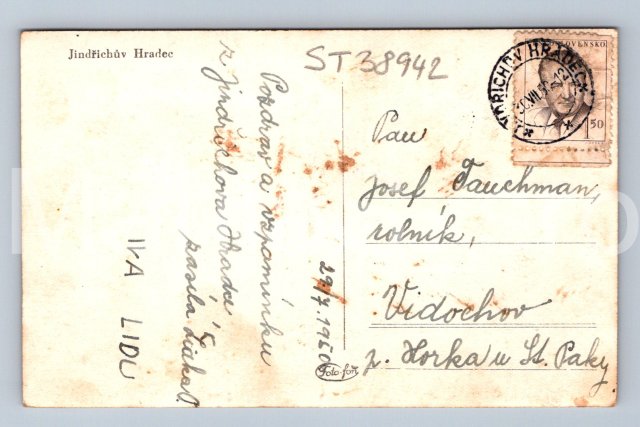 Jindřichův Hradec
ST 38942
Pozdrav a vzpomínku
z Jindřichova Hradce
zasílá
IVA LIDU
29/7.1950
Foto-fon
SLOVENSKO
1 50
JINDŘICHŮV HRADEC
Pan
Josef Tauchman,
rolník,
Vidochov
p. Horka u St. Paky